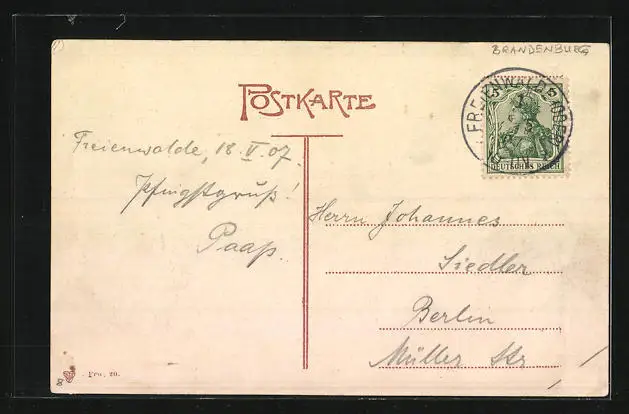 BRANDENBURG
POSTKARTE
FREIENWALDE (ODER)
DEUTSCHES REICH
Freienwalde, 18. V. 07.
Pfingstgruß!
Paaß.
Herrn Johannes
Siedler
Berlin
Müller Str
Fro. 20.